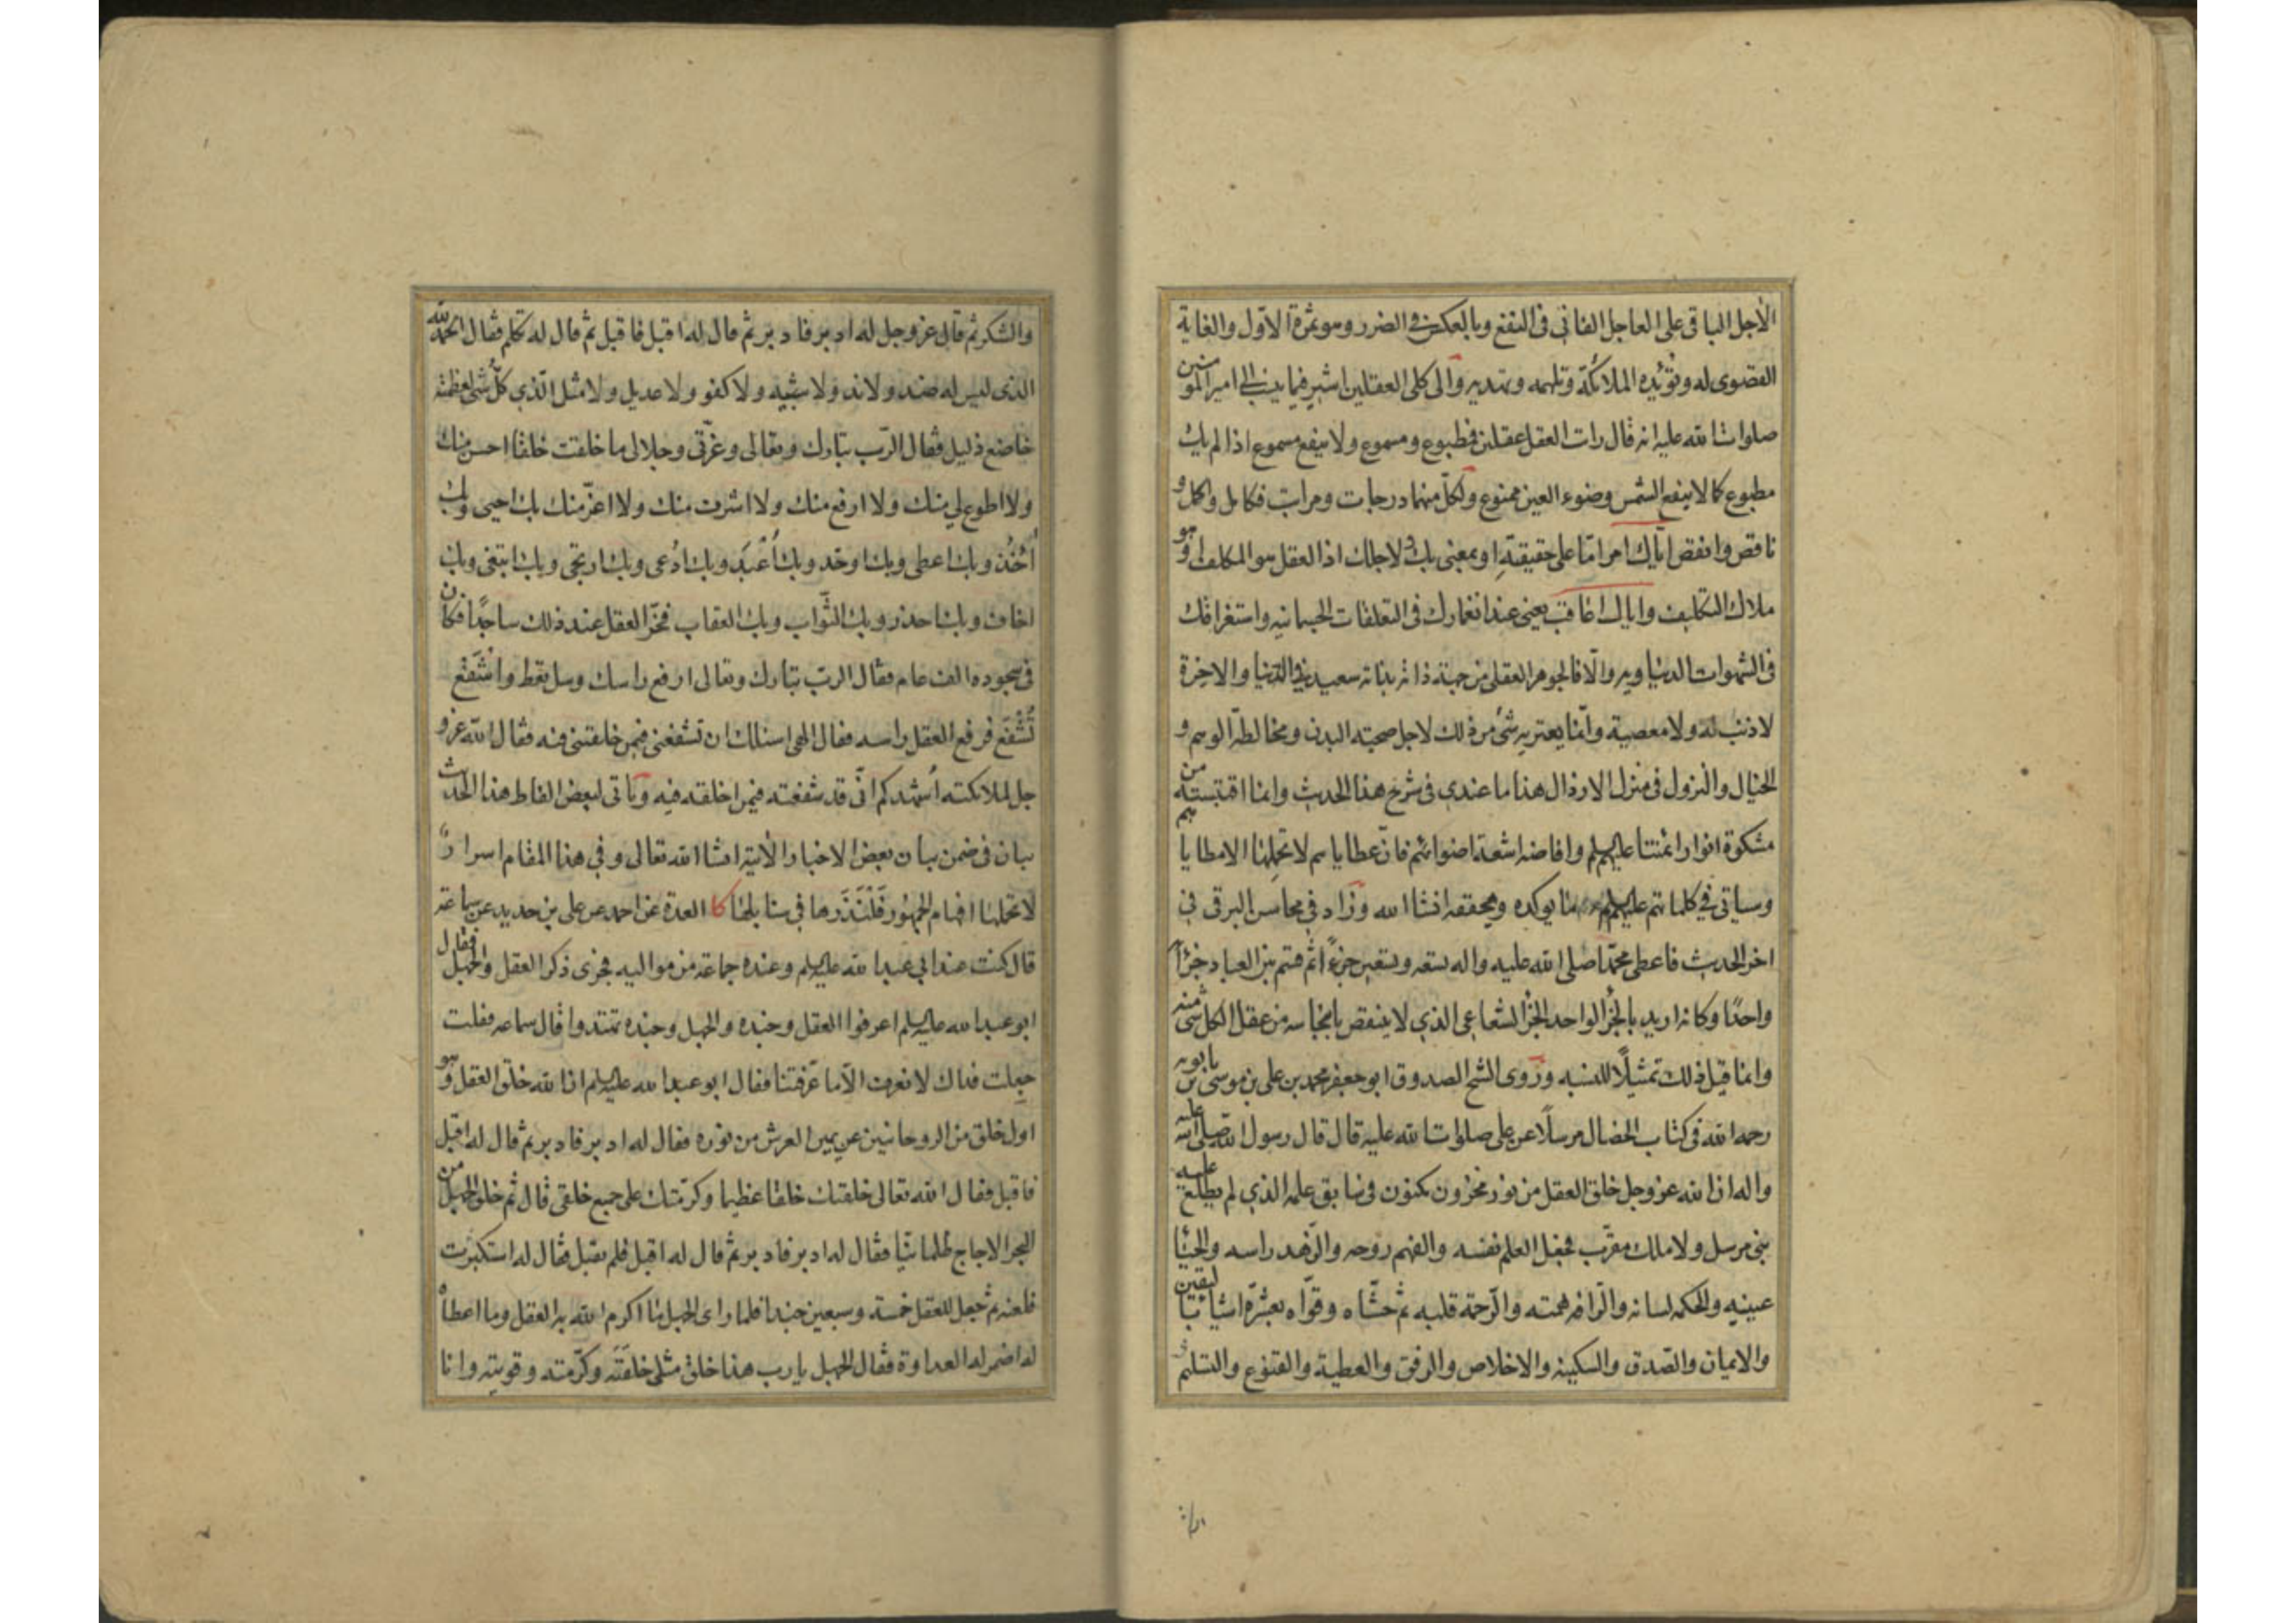 الأجل الباقي على العاجل الفاني في النفع وبالعكس في الضرر وهو ثمرة الاوّل والغاية
القصوى له وتؤيّده الملائكة وتلهمه وتهديه والى كلى العقلين اشير فيما ينسب الى امير المؤمنين
صلوات الله عليه انه قال رايت العقل عقلين فمطبوع ومسموع ولا ينفع مسموع اذا لم يك
مطبوع كما لا ينفع الشمس وضوء العين ممنوع ولكلّ منهما درجات ومراتب فكامل واكمل و
ناقص وانقص اياك امر امّا على حقيقته او بمعنى بك ولاجلك اذ العقل هو المكلف وهو
ملاك التكليف واياك اعاقب يعنى عند انغمارك فى التعلقات الجسمانيه واستغراقك
فى الشهوات الدنياويه والّا فالجوهر العقلى من جهة ذاته بذاته سعيد في الدنيا والاخرة
لا ذنب له ولا معصية وانّما يعتريه شئ من ذلك لاجل صحبته البدن ومخالطة الوهم و
الخيال والنزول فى منزل الارذال هذا ما عندى فى شرح هذا الحديث وانما اقتبسته من
مشكوة انوار ائمتنا عليهم السلم وافاضه اشعة اضوائهم فان عطاياهم لا تحملها الا مطاياهم
وسياتى في كلماتهم عليهم السلم ما يؤكده ويحققه انشا الله وزاد في محاسن البرقى فى
اخر الحديث فاعطى محمّدا صلى الله عليه واله تسعه وتسعين جزءًا ثم قسم بين العباد جزءًا
واحدًا وكانه اريد بالجزء الواحد الجزء الشعاعى الذي لا ينقص بانبجاسه من عقل الكل شئ منه
وانما قيل ذلك تمثيلًا للنسبه وروى الشيخ الصدوق ابو جعفر محمد بن على بن موسى بن بابويه
رحمه الله فى كتاب الخصال مرسلًا عن على صلوات الله عليه قال قال رسول الله صلى الله عليه
واله ان الله عز وجل خلق العقل من نور مخزون مكنون فى سابق علمه الذي لم يطلع عليه
نبى مرسل ولا ملك مقرّب فجعل العلم نفسه والفهم روحه والزهد راسه والحيا
عينيه والحكمه لسانه والرافه همته والرّحمة قلبه ثم حشاه وقوّاه بعشرة اشيا باليقين
والايمان والصّدق والسكينه والاخلاص والرفق والعطية والقنوع والتسليم
والشكر ثم قال عز وجل له ادبر فادبر ثم قال له اقبل فاقبل ثم قال له تكلم فقال الحمد لله
الذى ليس له ضد ولا ند ولا شبيه ولا كفو ولا عديل ولا مثل الّذي كلّ شئ لعظمته
خاضع ذليل فقال الرّب تبارك وتعالى وعزّتى وجلالى ما خلقت خلقا احسن منك
ولا اطوع لي منك ولا ارفع منك ولا اشرف منك ولا اعزّ منك بك احيى وبك
أخُذ وبك اعطى وبك اوحّد وبك أُعْبَد وبك ادُعى وبك ارتجى وبك ابتغى وبك
اخاف وبك احذر وبك الثّواب وبك العقاب فخرّ العقل عند ذلك ساجدًا فكان
فى سجوده الف عام فقال الربّ تبارك وتعالى ارفع راسك وسل تعط واشْفَعْ
تُشْفَع فرفع العقل راسه فقال الهى اسئلك ان تشفعنى فيمن خلقتنى فيه فقال الله عز و
جل لملائكته اُشهدكم انّى قد شفعته فيمن اخلقته فيه وياتى لبعض الفاظ هذا الحديث
بيان فى ضمن بيان بعض الاخبار الأتيه انشا الله تعالى وفي هذا المقام اسرارً
لا تحملها افهام الجمهور فَلْنَذَرها في سنابلها كا العدة عن احمد عن على بن حديد عن سماعة
قال كنت عند ابي عبد الله عليه السلم وعنده جماعة من مواليه فجرى ذكر العقل والجهل فقال
ابو عبد الله عليه السلم اعرفوا العقل وجنده والجهل وجنده تهتدوا قال سماعه فقلت
جعلت فداك لا نعرف الّا ما عرّفتنا فقال ابو عبد الله عليه السلم ان الله خلق العقل وهو
اول خلق من الروحانيين عن يمين العرش من نوره فقال له ادبر فادبر ثم قال له اقبل
فاقبل فقال الله تعالى خلقتك خلقا عظيما وكرّمتك على جميع خلقى قال ثم خلق الجهل من
البحر الاجاج ظلمانيّا فقال له ادبر فادبر ثم قال له اقبل فلم يقبل فقال له استكبرت
فلعنه ثم جعل للعقل خمسة وسبعين جندا فلما راى الجهل ما اكرم الله به العقل وما اعطاه
له اضمر له العداوة فقال الجهل يا رب هذا خلق مثلى خلقته وكرّمته وقويته وانا